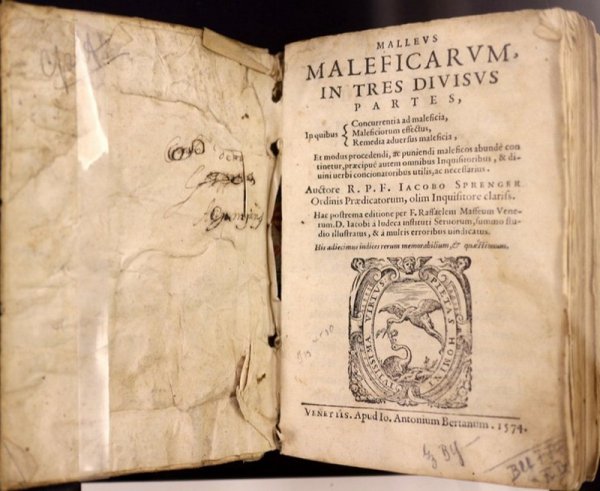 MALLEVS
MALEFICARVM,
IN TRES DIVISVS
PARTES,
In quibus
Concurrentia ad maleficia,
Maleficiorum effectus,
Remedia aduersus maleficia,
Et modus procedendi, & puniendi maleficos abundè con
tinetur, præcipuè autem omnibus Inquisitoribus, & di-
uini uerbi concionatoribus utilis, ac necessarius.
Auctore R. P. F. IACOBO SPRENGER
Ordinis Prædicatorum, olim Inquisitore clariss.
Hac postrema editione per F. Raffaelem Maffeum Vene
tum. D. Iacobi à Iudeca instituti Seruorum, summo stu-
dio illustratus, & à multis erroribus uindicatus.
His adiecimus indices rerum memorabilium, & quæstionum.
PIETAS HOMINI
VIRTVS
VENETIIS. Apud Io. Antonium Bertanum. 1574.